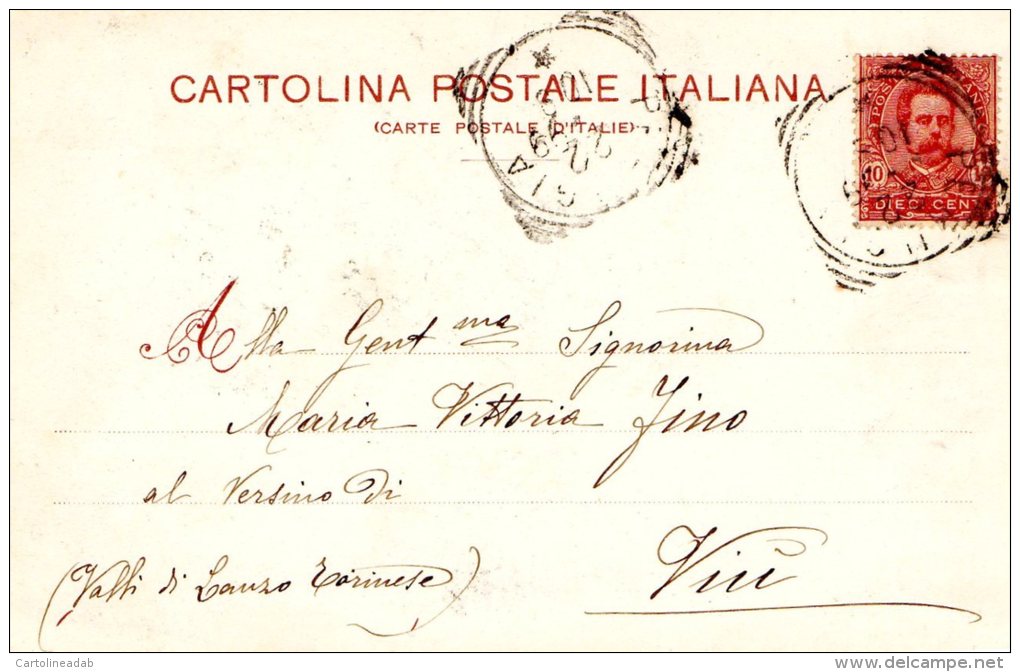 CARTOLINA POSTALE ITALIANA
(CARTE POSTALE D'ITALIE)
DIECI CENT
Alla Gent ma Signorina
Maria Vittoria Fino
al Versino di
Viù
(Valli di Lanzo Torinese)
Cartolineadab
www.delcampe.net